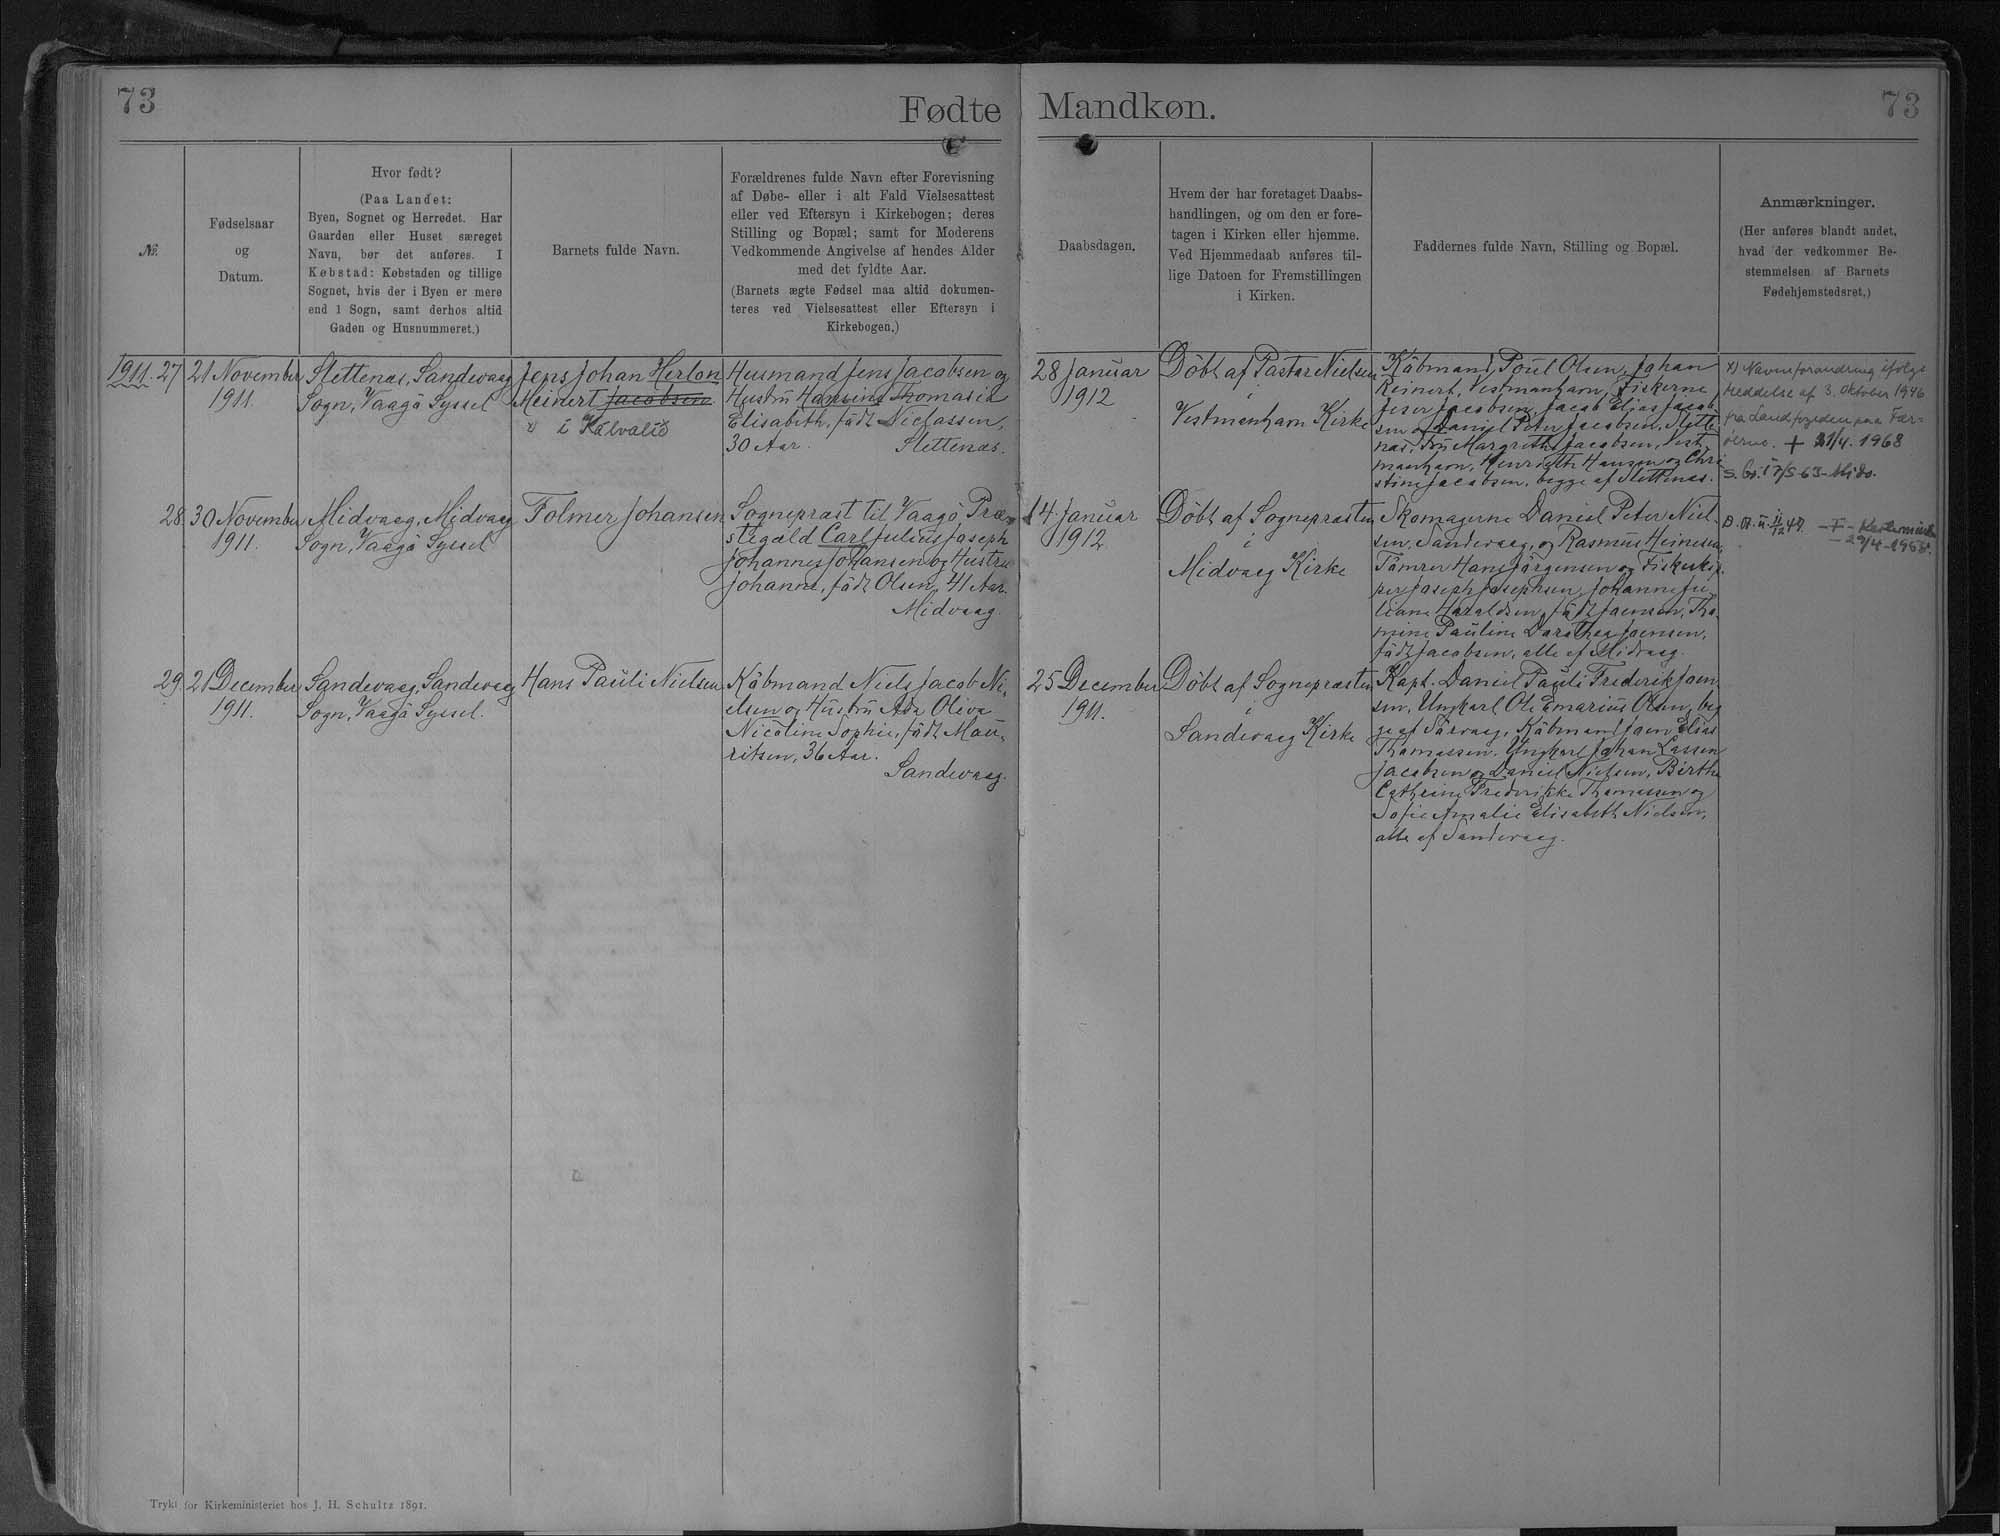 73
Fødte
Mandkøn.
73
№.
Fødselsaar
og
Datum.
Hvor født?
(Paa Landet:
Byen, Sognet og Herredet. Har
Gaarden eller Huset særeget
Navn, bør det anføres. I
Købstad: Købstaden og tillige
Sognet, hvis der i Byen er mere
end 1 Sogn, samt derhos altid
Gaden og Husnummeret.)
Barnets fulde Navn.
Forældrenes fulde Navn efter Forevisning
af Døbe- eller i alt Fald Vielsesattest
eller ved Eftersyn i Kirkebogen; deres
Stilling og Bopæl; samt for Moderens
Vedkommende Angivelse af hendes Alder
med det fyldte Aar.
(Barnets ægte Fødsel maa altid dokumen-
teres ved Vielsesattest eller Eftersyn i
Kirkebogen.)
Daabsdagen.
Hvem der har foretaget Daabs-
handlingen, og om den er fore-
tagen i Kirken eller hjemme.
Ved Hjemmedaab anføres til-
lige Datoen for Fremstillingen
i Kirken.
Faddernes fulde Navn, Stilling og Bopæl.
Anmærkninger.
(Her anføres blandt andet,
hvad der vedkommer Be-
stemmelsen af Barnets
Fødehjemstedsret.)
1911. 27
21 November
1911.
Slettenæs, Sandevaag
Sogn, Vaagö Syssel
Jens Johan Herlon
Meinert Jacobsen
x) í Kálvalíð
Husmand Jens Jacobsen og
Hustrü Hansine Thomasia
Elisabeth, födt Niclassen,
30 Aar.
Slettenæs.
28 Januar
1912
Döbt af Pastor Nielsen
i
Vestmanhavn Kirke
Köbmand Poül Olsen, Johan
Reinert, Vestmanhavn, Fiskerne
Jacobsen, Jacob Elias Jacob-
sen og Daniel Peter Jacobsen, Slette-
næs, Frü Margrethe Jacobsen, Vest
manhavn, Henriette Hansen og Chri
stine Jacobsen, begge af Slettenæs.
x) Navneforandring ifølge
Meddelse af 3. Oktober 1946
fra Landfogeden paa Fær-
öerne. + 21/4. 1968
28.
30 November
1911.
Midvaag, Midvaag
Sogn, Vaagö Syssel
Folmer Johansen
Sognepræst til Vaagö Præ-
stegæld Carl Julius Joseph
Johannes Johansen og Hustrü
Johanne, födt Olsen, 41 Aar.
Midvaag.
14. Januar
1912.
Döbt af Sognepræsten
i
Midvaag Kirke
Skomagerne Daniel Peter Niel-
sen, Sandevaag, og Rasmus Heinesen,
Tömrer Hans Jörgensen og Fiskeskip-
per Joseph Josephsen, Johanne Ju-
liane Haraldsen, födt Joensen, Tho-
mine Pauline Dorothea Joensen,
födt Jacobsen, alle af Midvaag.
29.
21 December
1911.
Sandevaag, Sandevaag
Sogn, Vaagö Syssel.
Hans Pauli Nielsen
Köbmand Niels Jacob Ni-
elsen og Hustrü Ada Oliva
Nicoline Sophie, födt Mou-
ritsen, 36 Aar.
Sandevaag.
25 December
1911.
Döbt af Sognepræsten
i
Sandevaag Kirke
Kapt. Daniel Pauli Frederik Joen-
sen, Ungkarl Ole Emarius Olsen, beg
ge af Sörvaag, Köbmand Joen Elias
Thomassen, Ungkarl Johan Lassen
Jacobsen og Daniel Nielsen, Birthe
Cathrine Frederikke Thomassen og
Sofie Amalie Elisabeth Nielsen,
alle af Sandevaag.
Trykt for Kirkeministeriet hos J. H. Schultz 1891.